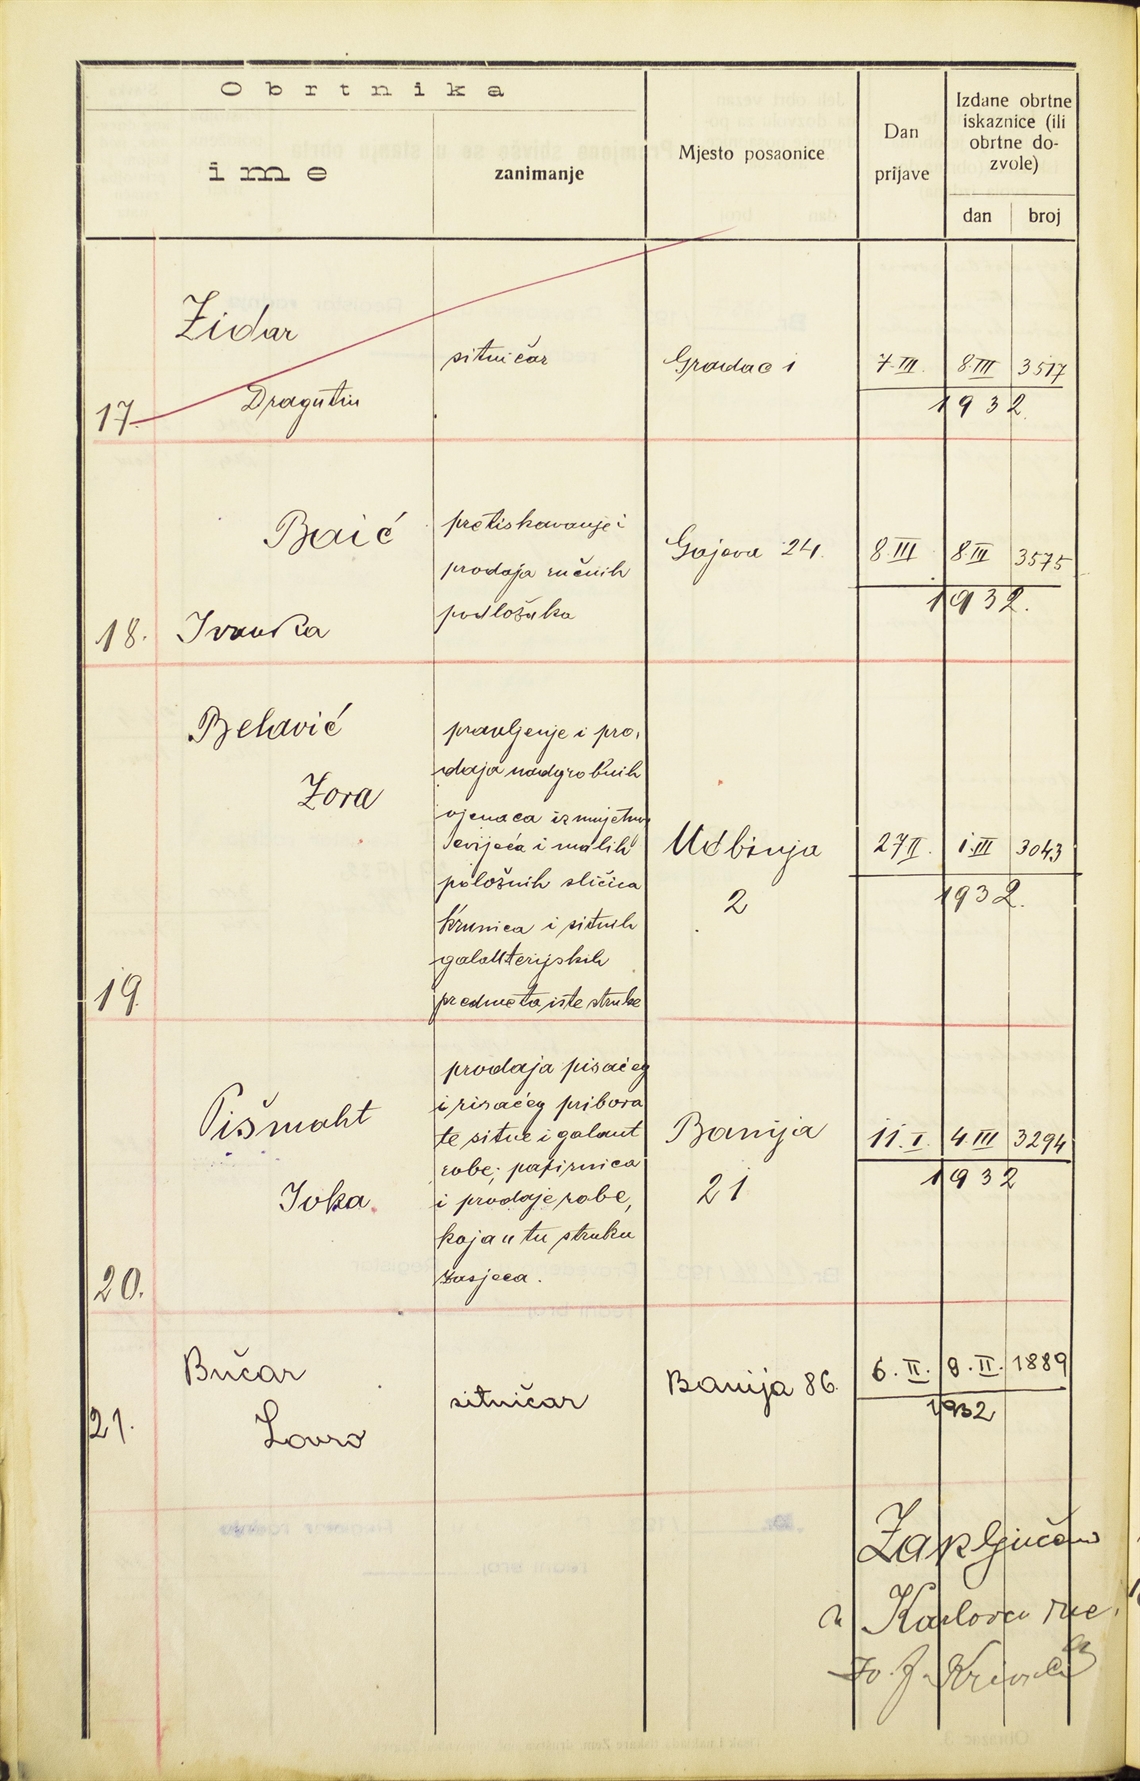 Obrtnika
ime
zanimanje
Mjesto posaonice
Dan
prijave
Izdane obrtne
iskaznice (ili
obrtne do-
zvole)
dan
broj
17.
Zidar
Dragutin
sitničar
Gradac 1
7.III.
8.III
3517
1932.
18.
Baić
Ivanka
pretiskavanje i
prodaja ručnih
podložaka
Gajeva 24.
8.III
8.III
3575
1932.
19.
Belavić
Zora
pravljenje i pro-
daja nadgrobnih
vjenaca iz umjetnog
cvijeća i malih
položnih sličica
krunica i sitnih
galanterijskih
predmeta iste struke
Udbinja
2
27II.
1.III
3043
1932.
20.
Pišmaht
Ivka
prodaja pisaćeg
i risaćeg pribora
te sitne i galant
robe; papirnica
i prodaje robe,
koja u tu struku
zasjeca.
Banija
21
11.I.
4III
3294
1932
21.
Bučar
Lovro
sitničar
Banija 86.
6.II.
9.II.
1889
1932
Zaključeno
u Karlovcu